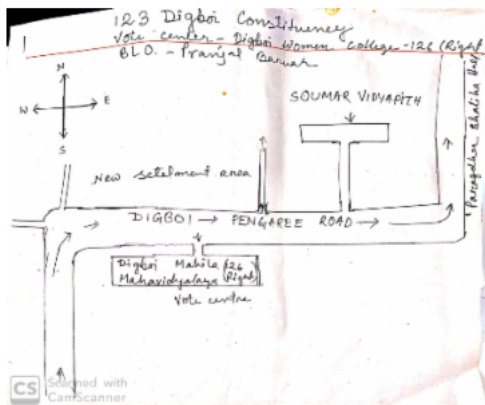 123 Digboi Constituency
Vote center - Digboi Women College - 126 (Right
BLO. - Pranjal Baruah
N
W E
S
SOUMAR VIDYAPITH
New setelment area
DIGBOI → PENGAREE ROAD →
Digboi Mahila (126
Mahavidyalaya Right)
Vote centre
CS Scanned with
CamScanner